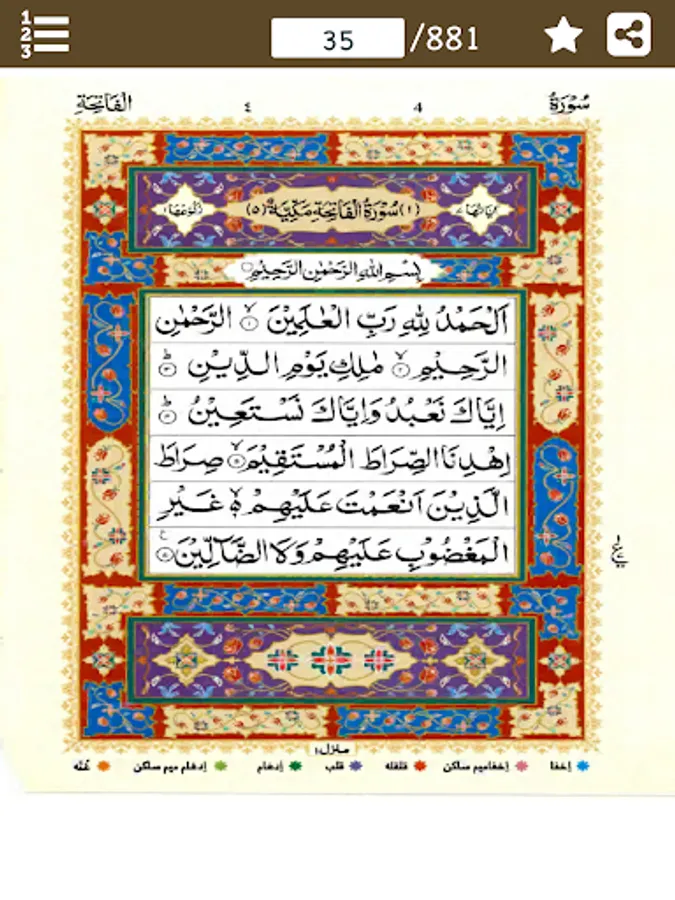 1
2
3
35 /881
سُوْرَةُ 4 ٤ الْفَاتِحَةِ
اٰيَاتُهَا ٧ (١) سُوْرَةُ الْفَاتِحَةِ مَكِّيَّةٌ (٥) رُكُوْعُهَا ١
بِسْمِ اللّٰهِ الرَّحْمٰنِ الرَّحِيْمِ
اَلْحَمْدُ لِلّٰهِ رَبِّ الْعٰلَمِيْنَ ۙ﴿١﴾ الرَّحْمٰنِ
الرَّحِيْمِ ۙ﴿٢﴾ مٰلِكِ يَوْمِ الدِّيْنِ ؕ﴿٣﴾
اِيَّاكَ نَعْبُدُ وَاِيَّاكَ نَسْتَعِيْنُ ؕ﴿٤﴾
اِهْدِنَا الصِّرَاطَ الْمُسْتَقِيْمَ ۙ﴿٥﴾ صِرَاطَ
الَّذِيْنَ اَنْعَمْتَ عَلَيْهِمْ ۙ۬ غَيْرِ
الْمَغْضُوْبِ عَلَيْهِمْ وَلَا الضَّآلِّيْنَ
منزل ١
إخفا إخفاميم ساكن قلقله قلب إدغام إدغام ميم ساكن غُنّه